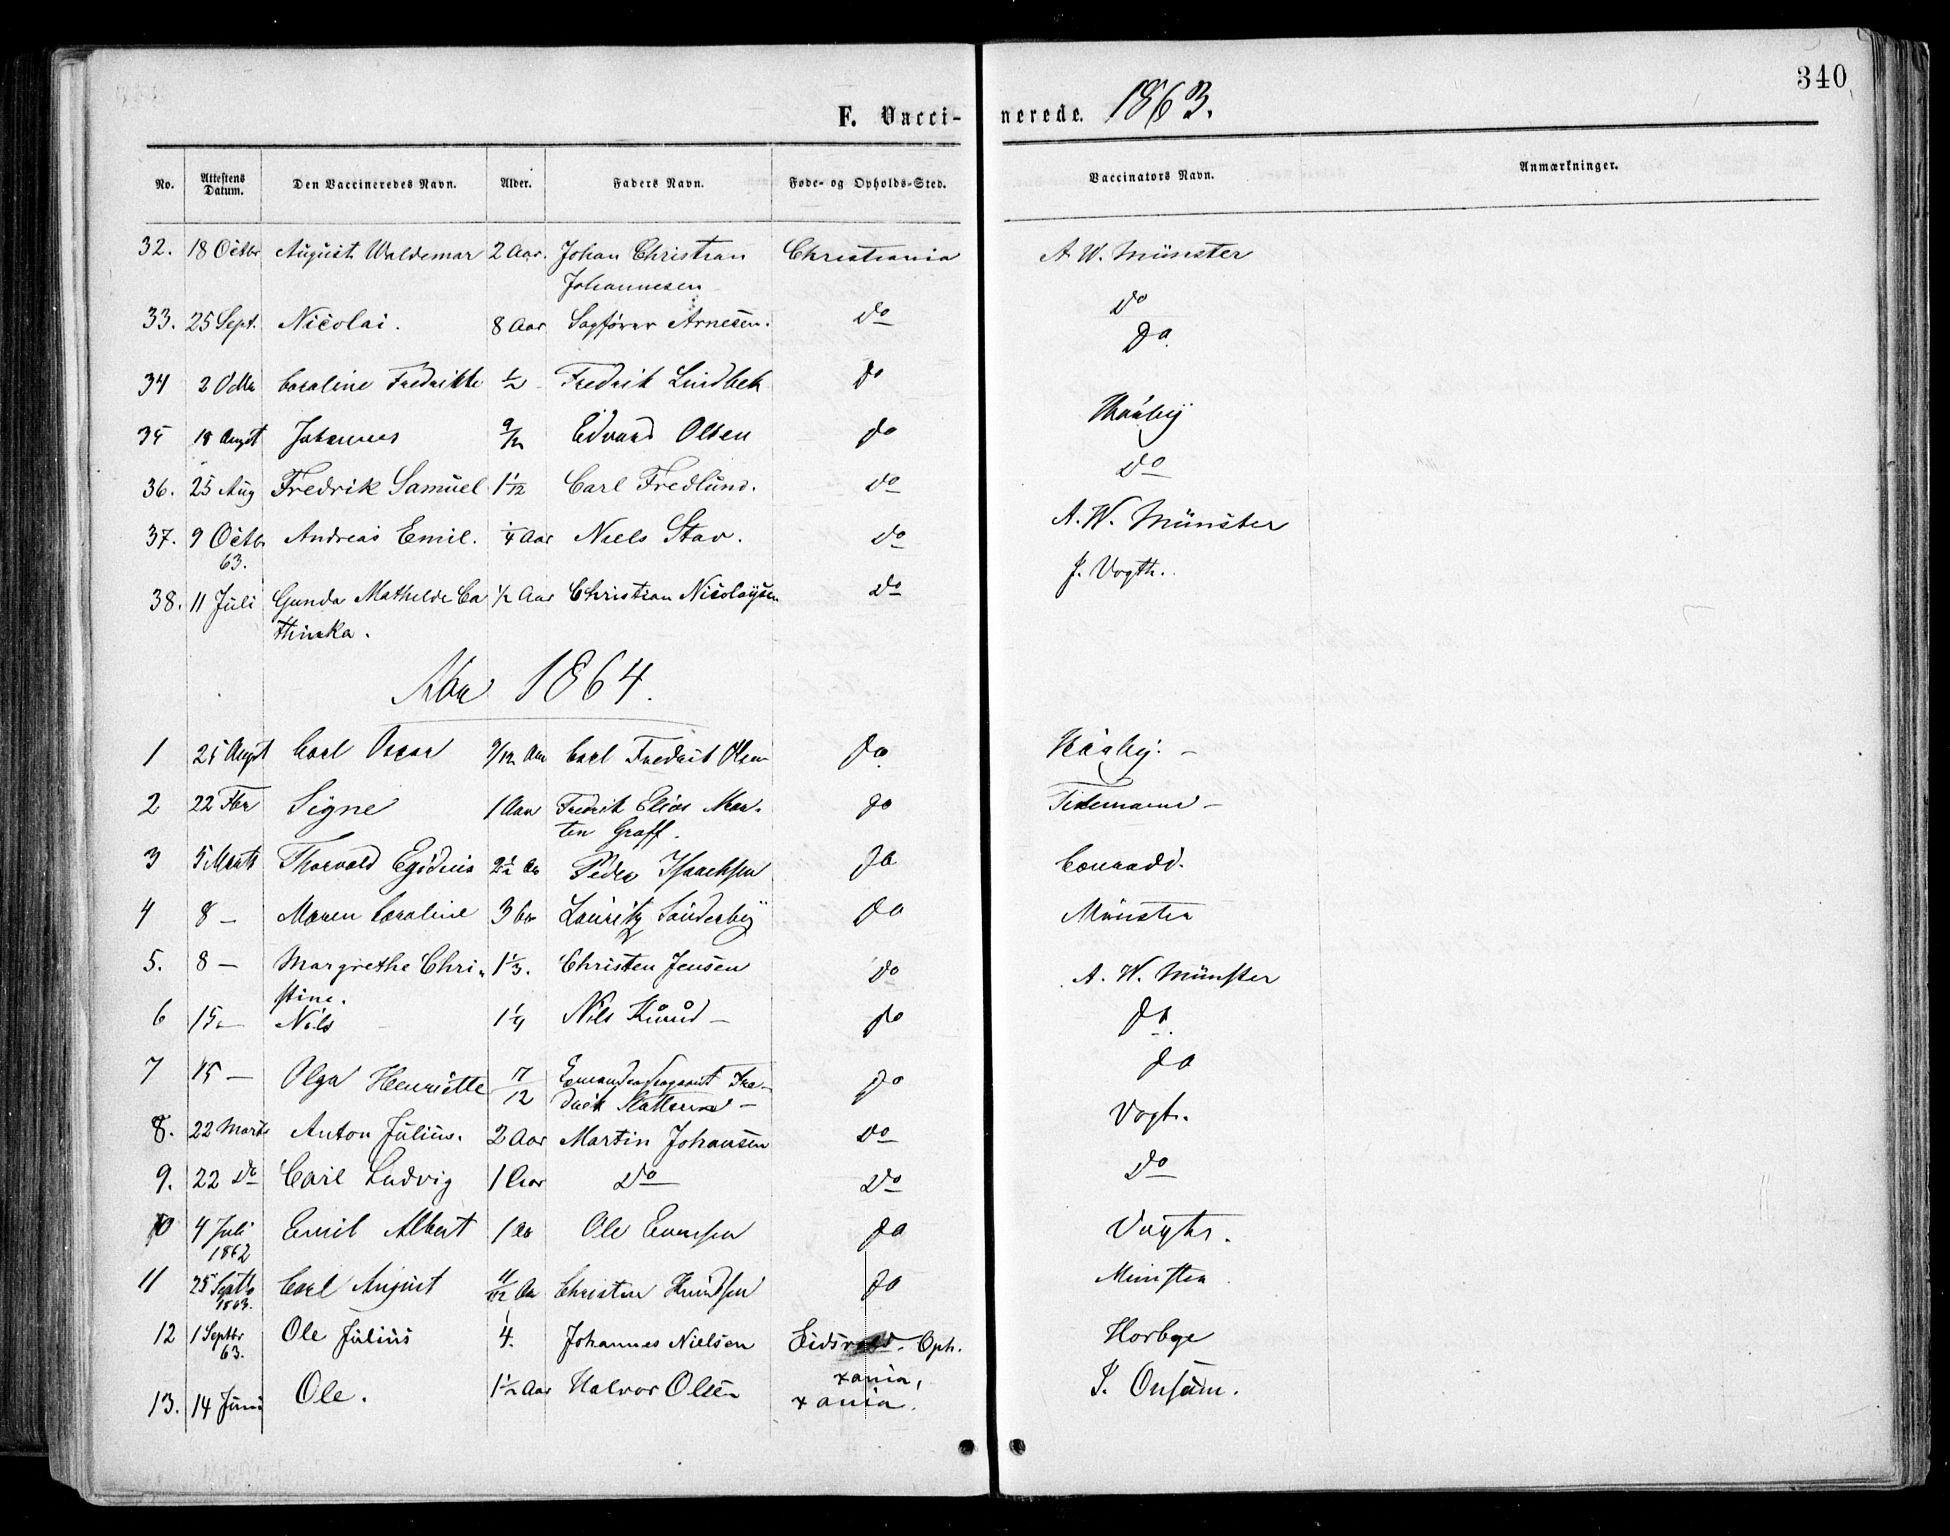 340
F. Vaccinerede. 1863.
No. Attestens Datum. Den Vaccineredes Navn. Alder. Faders Navn. Føde- og Opholds-Sted. Vaccinators Navn. Anmærkninger.
32. 18 Octbr August Waldemar 2 Aar. Johan Christian Christiania A. W. Münster
Johannesen
33. 25 Sept. Nicolai. 8 Aar Sagfører Arnesen. do do
34 2 Caroline Fredrikke ½ Fredrik Lindbek do do
35 18 Augst Johannes 9/12 Edvard Olsen do
36. 25 Aug Fredrik Samuel 1 1/12 Carl Fredlund. do do
37. 9 Octbr Andreas Emil. ¼ Aar Niels Stav. do A. W. Münster
63.
38. 11 Juli Gunda Mathilde Ca ½ Aar Christian Nicolaysen do J. Vogth.
thinka.
1864.
1 25 Augst Carl Oscar 9/12 Aar Carl Fredrik Olsen do
2 22 Fbr Signe 1 Aar Fredrik Elias Mor- do Tidemand –
ten Graff.
3 5 Marts Thorvald Egidius 2½ Aar Peder Isaachsen do Conradi.
4 8 – Maren Caroline 3 Aar Lauritz Sönderby do Münster
5. 8 – Margrethe Chri- 1⅓. Christen Jensen do A. W. Münster
stine.
6 15 – Nils 1 Nils Knud – do do
7 15 – Olga Henriette 7/12 Fre- do do
drik –
8. 22 Marts Anton Julius. 2 Aar Martin Johansen do Vogt.
9. 22 do Carl Ludvig 1 Aar do do do
10 4 Juli Emil Albert 1 Aar Ole Evensen do Vogt.
1862
11 25 Septb Carl August 11/12 Aar Christen Knudsen do Münster
1863.
12 1 Septbr Ole Julius ¼. Johannes Nielsen Eidsvold. Oph. Horbye
63. xania,
13. 14 Juni Ole. 1½ Aar Halvor Olsen xania. J. Onsum.